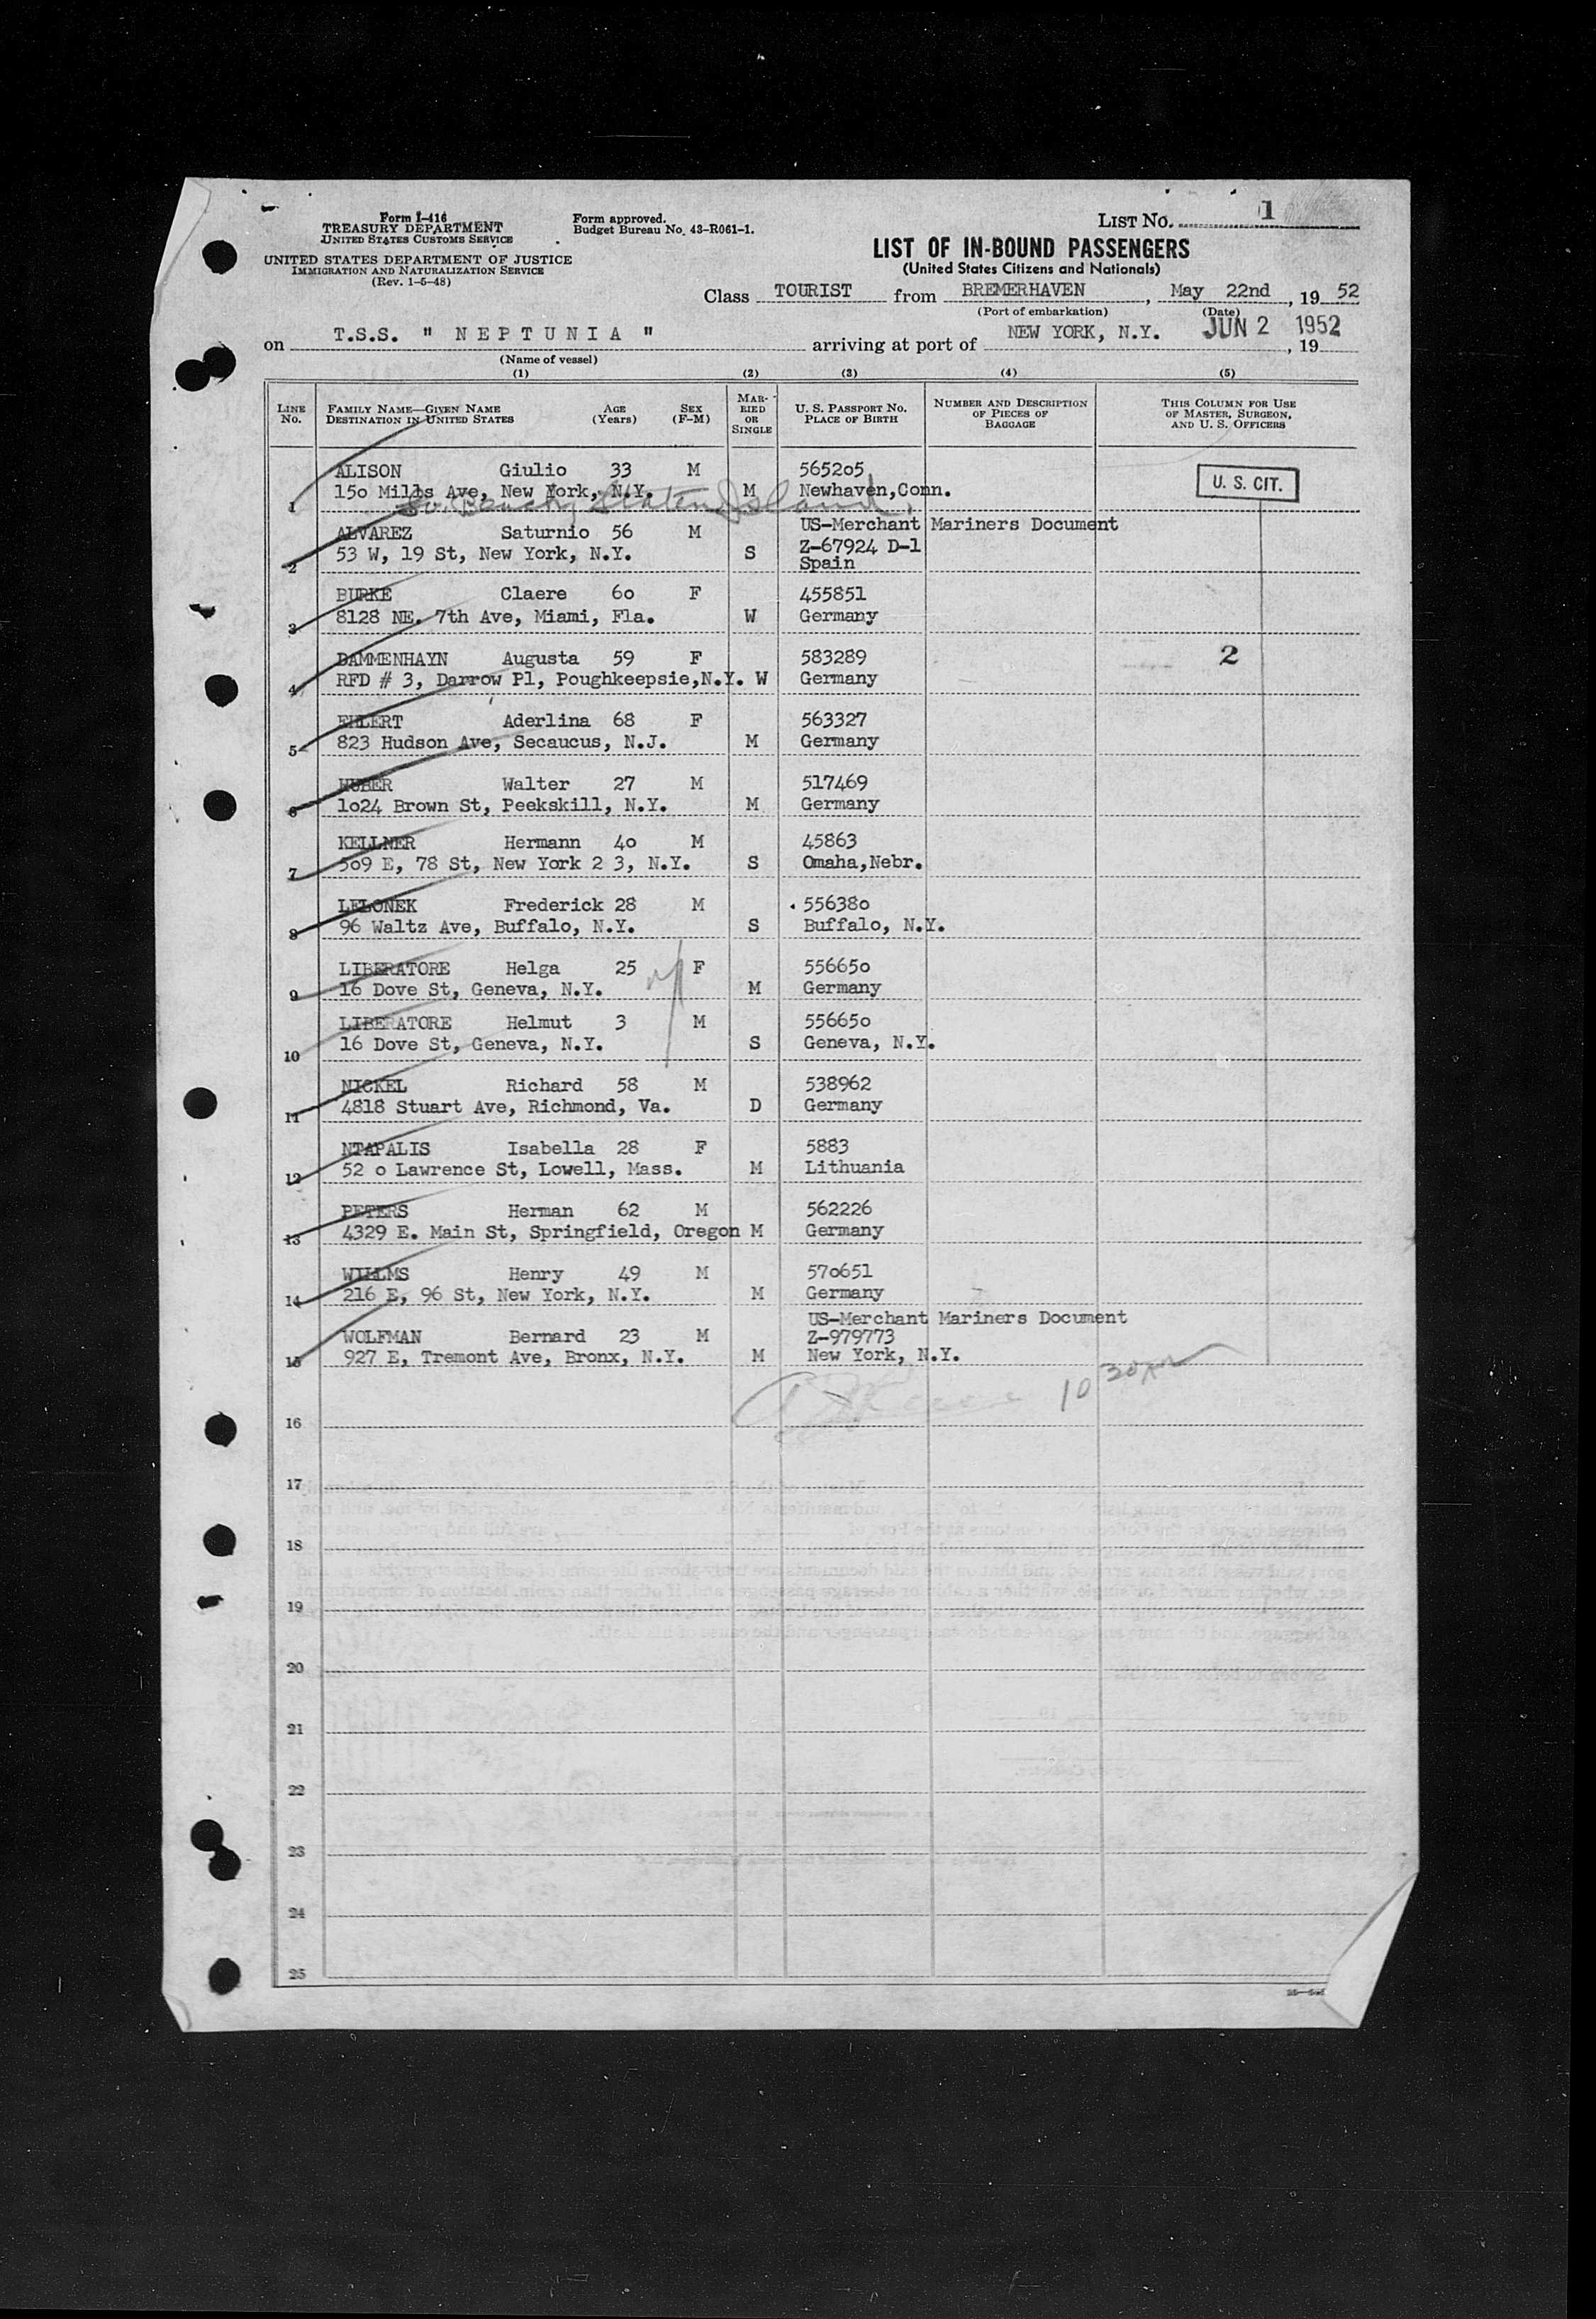 Form I-416
TREASURY DEPARTMENT
UNITED STATES CUSTOMS SERVICE
UNITED STATES DEPARTMENT OF JUSTICE
IMMIGRATION AND NATURALIZATION SERVICE
(Rev. 1-5-48)
Form approved.
Budget Bureau No. 43-R061-1.
LIST NO. 1
LIST OF IN-BOUND PASSENGERS
(United States Citizens and Nationals)
Class TOURIST from BREMERHAVEN, May 22nd, 19 52
(Port of embarkation) (Date)
on T.S.S. " N E P T U N I A " arriving at port of NEW YORK, N.Y. JUN 2 1952, 19
(Name of vessel)
(1) (2) (3) (4) (5)
LINE NO. FAMILY NAME—GIVEN NAME DESTINATION IN UNITED STATES AGE (Years) SEX (F-M) MARRIED OR SINGLE U. S. PASSPORT NO. PLACE OF BIRTH NUMBER AND DESCRIPTION OF PIECES OF BAGGAGE THIS COLUMN FOR USE OF MASTER, SURGEON, AND U. S. OFFICERS
ALISON Giulio 33 M 565205 U. S. CIT.
1 150 Mills Ave, New York, N.Y. M Newhaven,Conn.
So. Beach, Staten Island.
ALVAREZ Saturnio 56 M US-Merchant Mariners Document
2 53 W, 19 St, New York, N.Y. S Z-67924 D-1
Spain
BURKE Claere 60 F 455851
3 8128 NE. 7th Ave, Miami, Fla. W Germany
DAMMENHAYN Augusta 59 F 583289 2
4 RFD # 3, Darrow Pl, Poughkeepsie,N.Y. W Germany
EHLERT Aderlina 68 F 563327
5 823 Hudson Ave, Secaucus, N.J. M Germany
HUBER Walter 27 M 517469
6 1024 Brown St, Peekskill, N.Y. M Germany
KELLNER Hermann 40 M 45863
7 509 E, 78 St, New York 2 3, N.Y. S Omaha,Nebr.
LELONEK Frederick 28 M 556380
8 96 Waltz Ave, Buffalo, N.Y. S Buffalo, N.Y.
LIBERATORE Helga 25 F 556650
9 16 Dove St, Geneva, N.Y. M Germany
LIBERATORE Helmut 3 M 556650
10 16 Dove St, Geneva, N.Y. S Geneva, N.Y.
NICKEL Richard 58 M 538962
11 4818 Stuart Ave, Richmond, Va. D Germany
NTAPALIS Isabella 28 F 5883
12 52 o Lawrence St, Lowell, Mass. M Lithuania
PETERS Herman 62 M 562226
13 4329 E. Main St, Springfield, Oregon M Germany
WILLMS Henry 49 M 570651
14 216 E, 96 St, New York, N.Y. M Germany
US-Merchant Mariners Document
WOLFMAN Bernard 23 M Z-979773
15 927 E, Tremont Ave, Bronx, N.Y. M New York, N.Y.
10 30
16
17
18
19
20
21
22
23
24
25